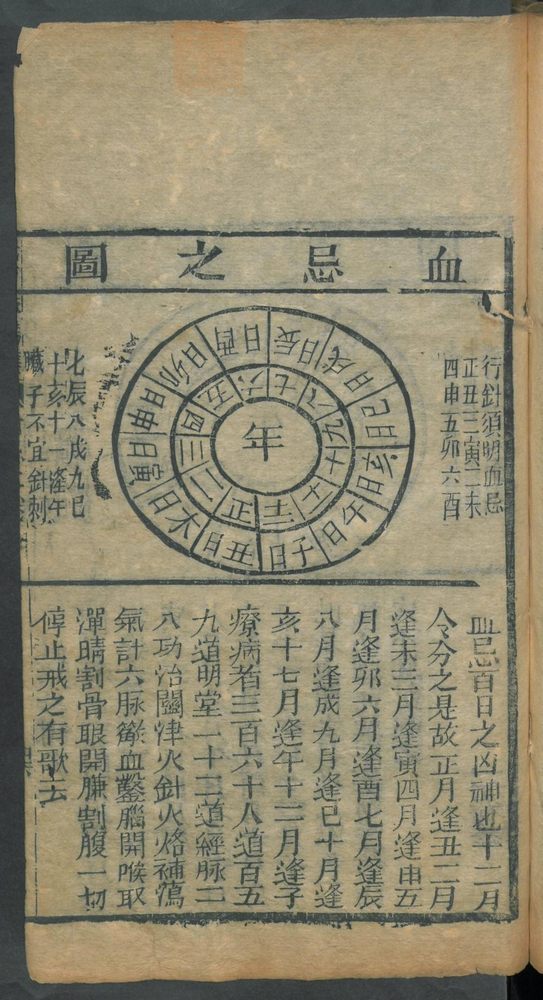 血忌之圖
行針須明血忌
正丑三寅二未
四申五卯六酉
年
正 二 三 四 五 六 七 八 九 十 十一 十二
丑日 未日 寅日 申日 卯日 酉日 辰日 戌日 巳日 亥日 午日 子日
七辰八戌九巳
十亥十一逢午
臘子不宜針刺
血忌百日之凶神也十二月
令分之是故正月逢丑二月
逢未三月逢寅四月逢申五
月逢卯六月逢酉七月逢辰
八月逢戌九月逢巳十月逢
亥十七月逢午十二月逢子
療病者三百六十人道百五
九道明堂一十二道經脉二
八功治關津火針火烙補瀉
氣計六脉𢒎血鑿腦開喉取
渾睛割骨眼開臁割腹一切
停止戒之有歌云